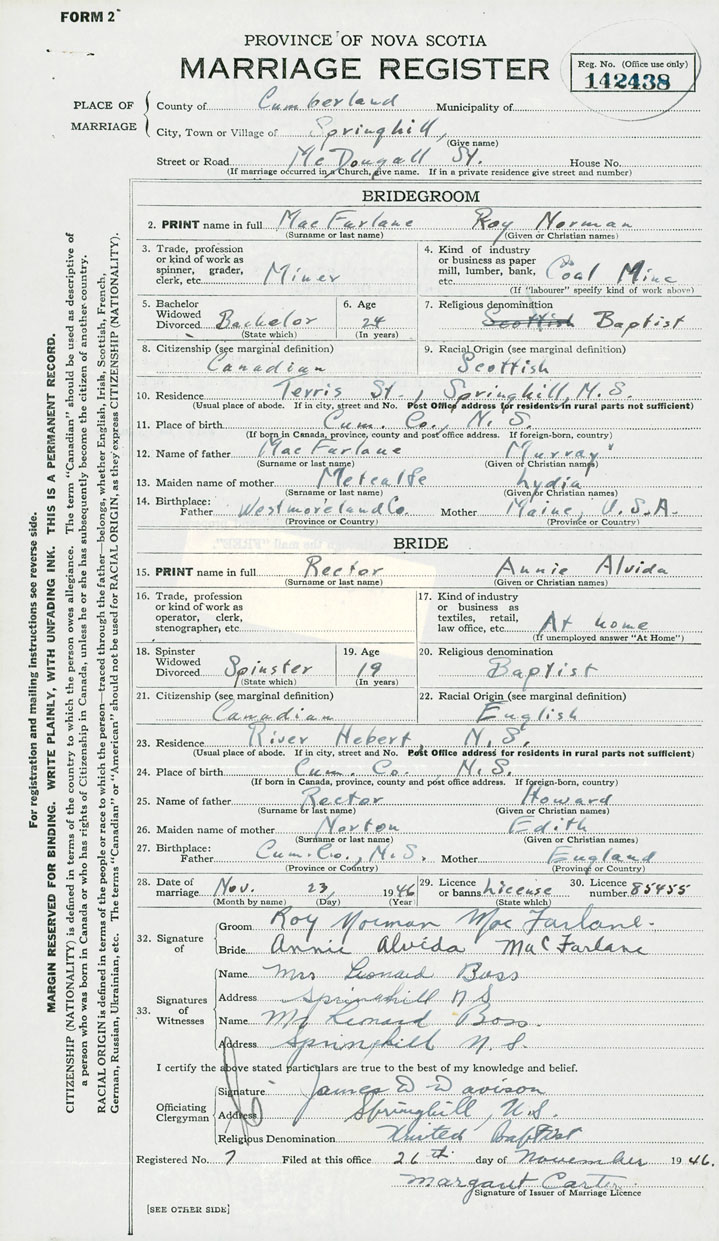 FORM 2
PROVINCE OF NOVA SCOTIA
MARRIAGE REGISTER
Reg. No. (Office use only)
142438
PLACE OF MARRIAGE
County of Cumberland Municipality of
City, Town or Village of Springhill,
(Give name)
Street or Road McDougall St. House No.
(If marriage occurred in a Church, give name. If in a private residence give street and number)
BRIDEGROOM
2. PRINT name in full MacFarlane Roy Norman
(Surname or last name) (Given or Christian names)
3. Trade, profession or kind of work as spinner, grader, clerk, etc. Miner
4. Kind of industry or business as paper mill, lumber, bank, etc. Coal Mine
(If "labourer" specify kind of work above)
5. Bachelor Widowed Divorced Bachelor
(State which)
6. Age 24
(In years)
7. Religious denomination Scottish Baptist
8. Citizenship (see marginal definition) Canadian
9. Racial Origin (see marginal definition) Scottish
10. Residence Terris St., Springhill, N.S.
(Usual place of abode. If in city, street and No. Post Office address for residents in rural parts not sufficient)
11. Place of birth Cum. Co., N.S.
(If born in Canada, province, county and post office address. If foreign-born, country)
12. Name of father MacFarlane Murray
(Surname or last name) (Given or Christian names)
13. Maiden name of mother Metcalfe Lydia
(Surname or last name) (Given or Christian names)
14. Birthplace: Father Westmoreland Co. Mother Maine, U.S.A.
(Province or Country) (Province or Country)
BRIDE
15. PRINT name in full Rector Annie Alvida
(Surname or last name) (Given or Christian names)
16. Trade, profession or kind of work as operator, clerk, stenographer, etc.
17. Kind of industry or business as textiles, retail, law office, etc. At home
(If unemployed answer "At Home")
18. Spinster Widowed Divorced Spinster
(State which)
19. Age 19
(In years)
20. Religious denomination Baptist
21. Citizenship (see marginal definition) Canadian
22. Racial Origin (see marginal definition) English
23. Residence River Hebert, N.S.
(Usual place of abode. If in city, street and No. Post Office address for residents in rural parts not sufficient)
24. Place of birth Cum. Co. N.S.
(If born in Canada, province, county and post office address. If foreign-born, country)
25. Name of father Rector Howard
(Surname or last name) (Given or Christian names)
26. Maiden name of mother Norton Edith
(Surname or last name) (Given or Christian names)
27. Birthplace: Father Cum. Co., N.S. Mother England
(Province or Country) (Province or Country)
28. Date of marriage Nov. 23, 1946
(Month by name) (Day) (Year)
29. Licence or banns License
(State which)
30. Licence number 85455
32. Signature of
Groom Roy Norman MacFarlane.
Bride Annie Alvida MacFarlane
33. Signatures of Witnesses
Name Mrs Leonard Boss
Address Springhill N S
Name Mr Leonard Boss.
Address Springhill N. S.
I certify the above stated particulars are true to the best of my knowledge and belief.
Officiating Clergyman
Signature James D Davison
Address Springhill, N.S.
Religious Denomination United Baptist
Registered No. 7 Filed at this office 26th day of November 1946.
Margaret Carter
Signature of Issuer of Marriage Licence
[SEE OTHER SIDE]
For registration and mailing instructions see reverse side.
MARGIN RESERVED FOR BINDING. WRITE PLAINLY, WITH UNFADING INK. THIS IS A PERMANENT RECORD.
CITIZENSHIP (NATIONALITY) is defined in terms of the country to which the person owes allegiance. The term "Canadian" should be used as descriptive of
a person who was born in Canada or who has rights of Citizenship in Canada, unless he or she has subsequently become the citizen of another country.
RACIAL ORIGIN is defined in terms of the people or race to which the person—traced through the father—belongs, whether English, Irish, Scottish, French,
German, Russian, Ukrainian, etc. The terms "Canadian" or "American" should not be used for RACIAL ORIGIN, as they express CITIZENSHIP (NATIONALITY).